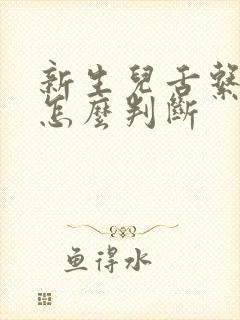 新生兒舌繫
怎麼判斷
魚得水